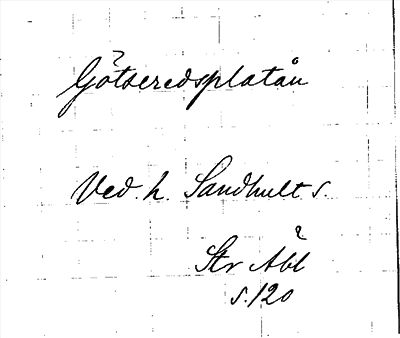 Götseredsplatån
Ved. h. Sandhult s.
Str Åbl
s. 120